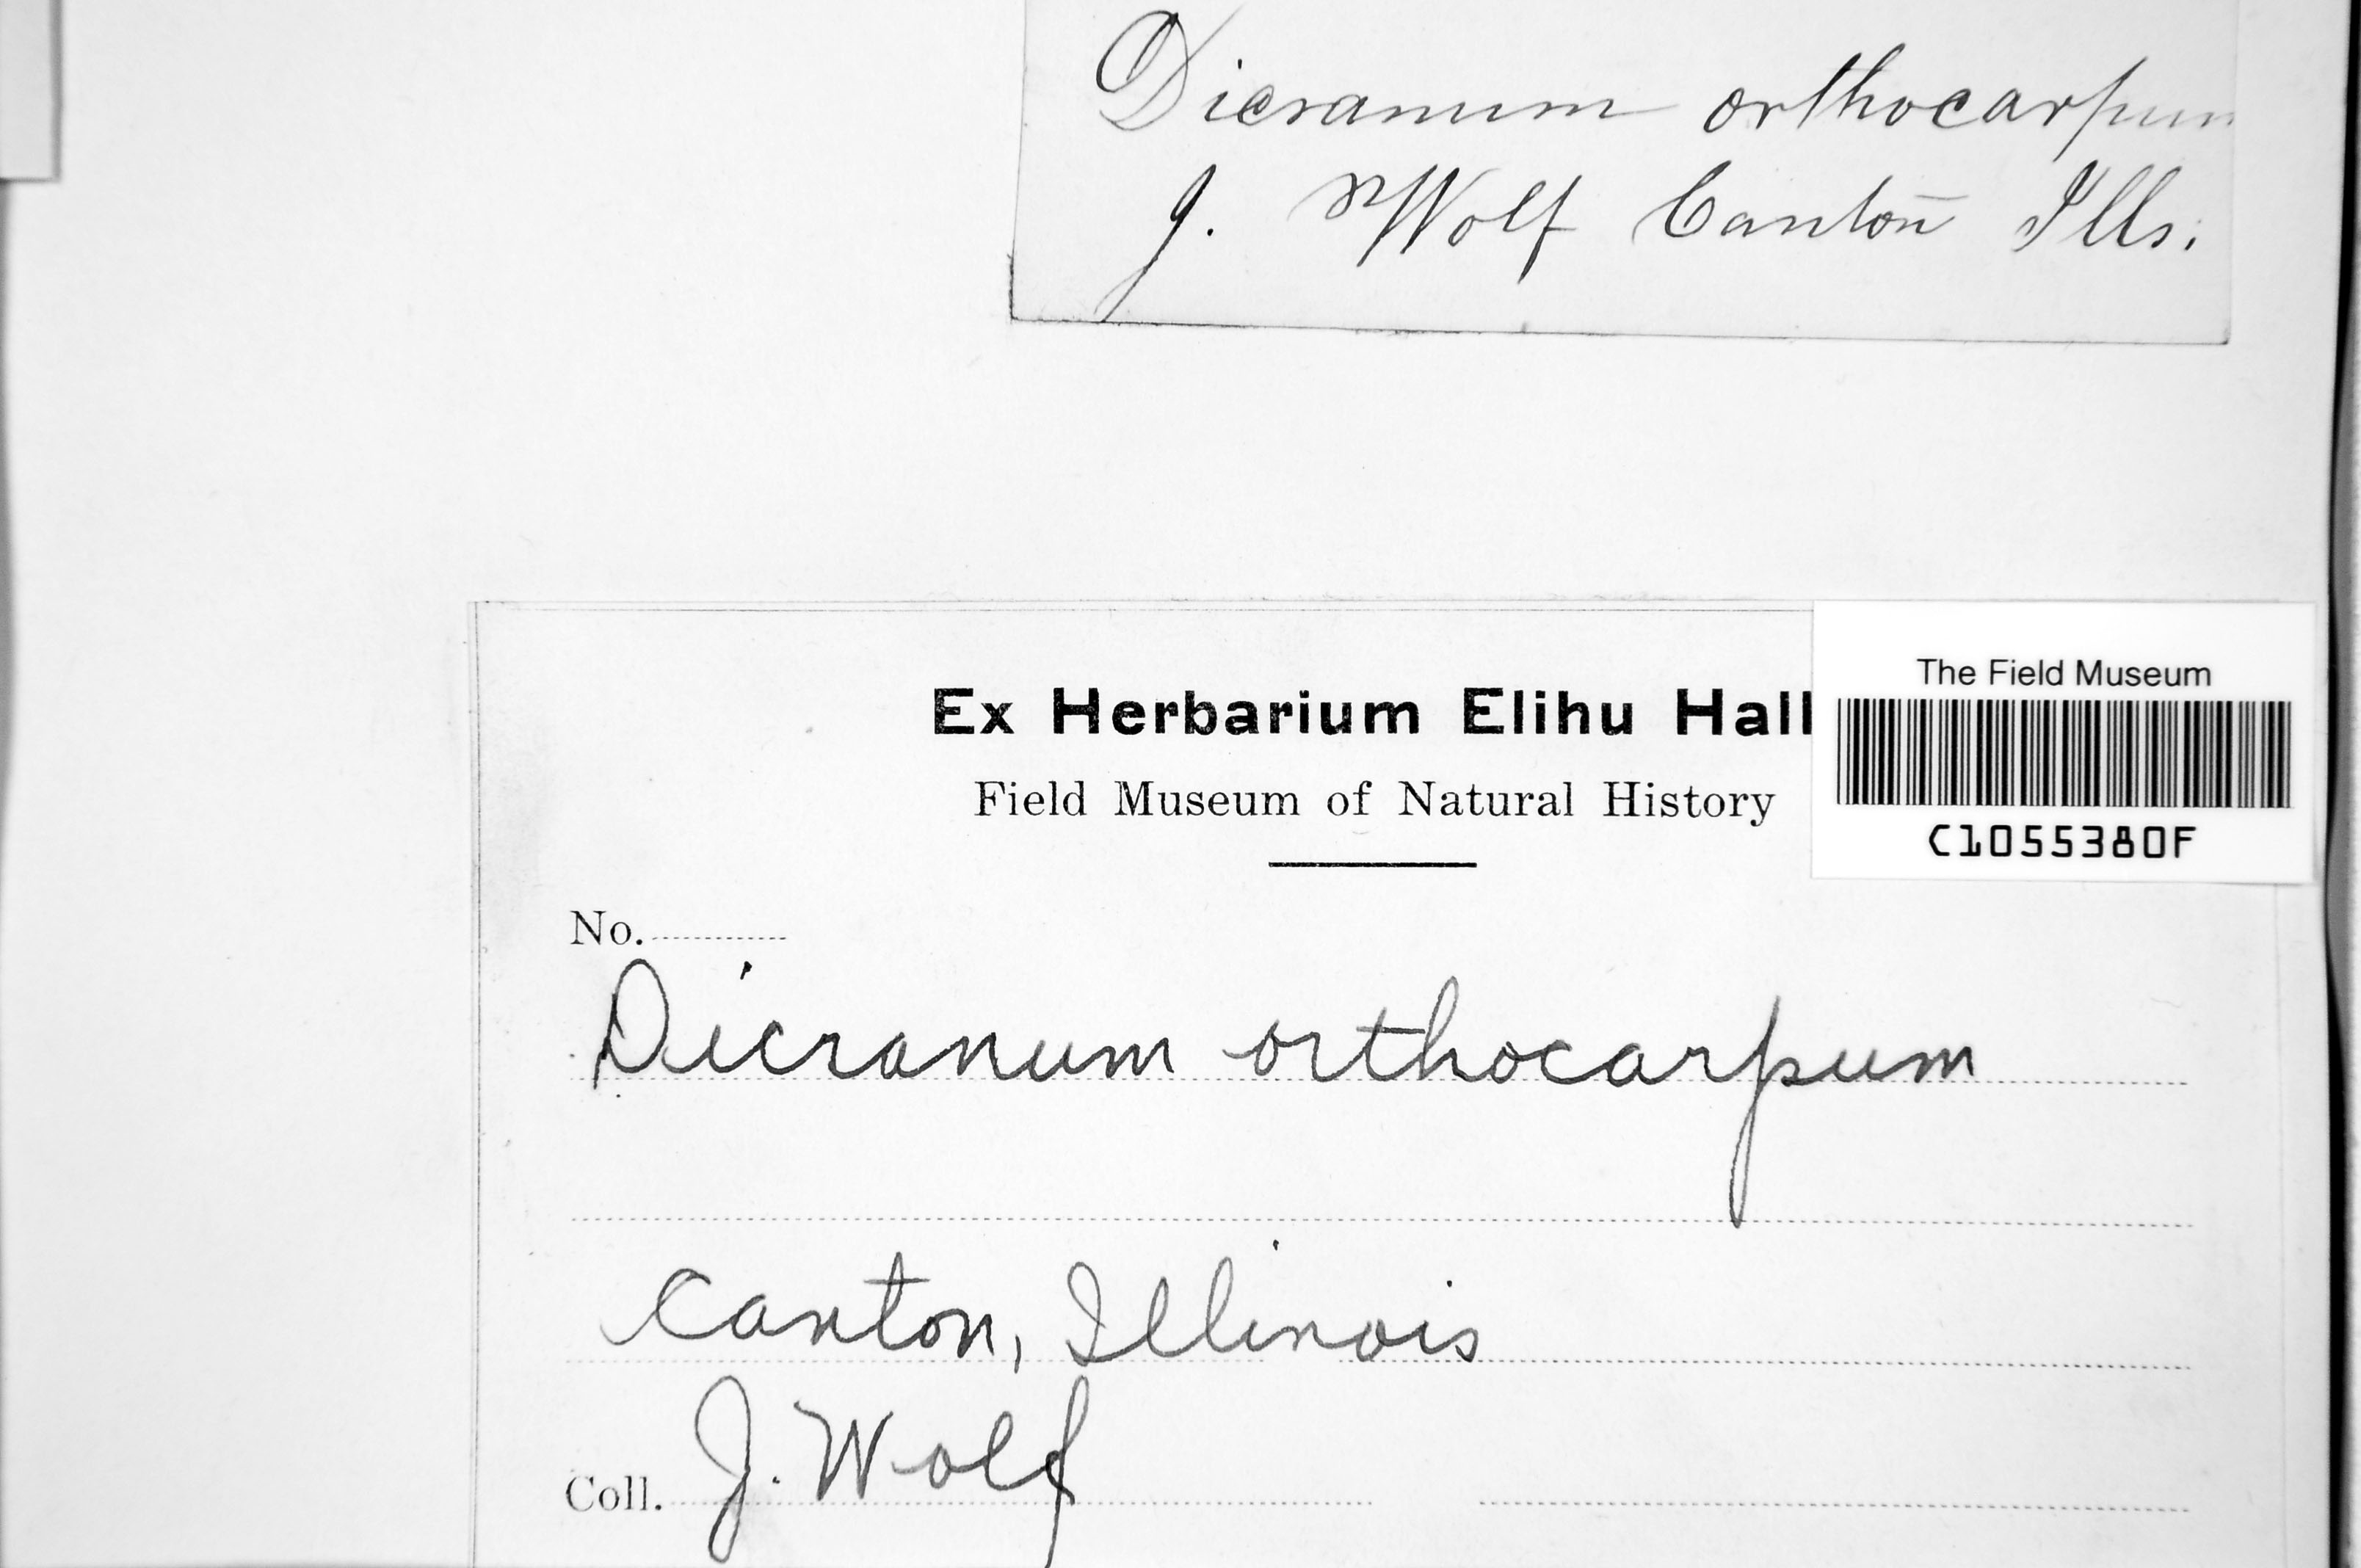 Dicranum orthocarpum
J. Wolf Canton Ills.
Ex Herbarium Elihu Hall
Field Museum of Natural History
The Field Museum
C1055380F
No.
Dicranum orthocarpum
Canton, Illinois
Coll. J. Wolf